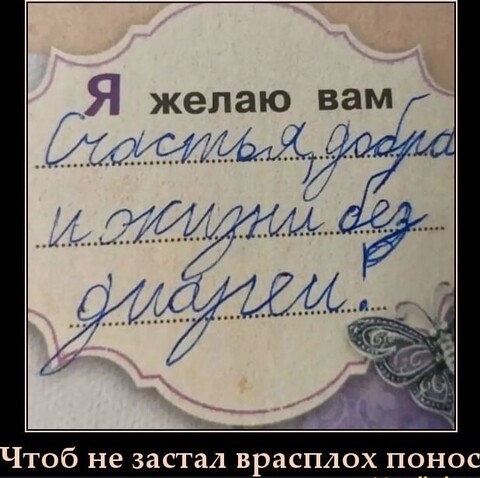 Я желаю вам
Счастья, добра
и жизни без
диареи!
Чтоб не застал врасплох понос